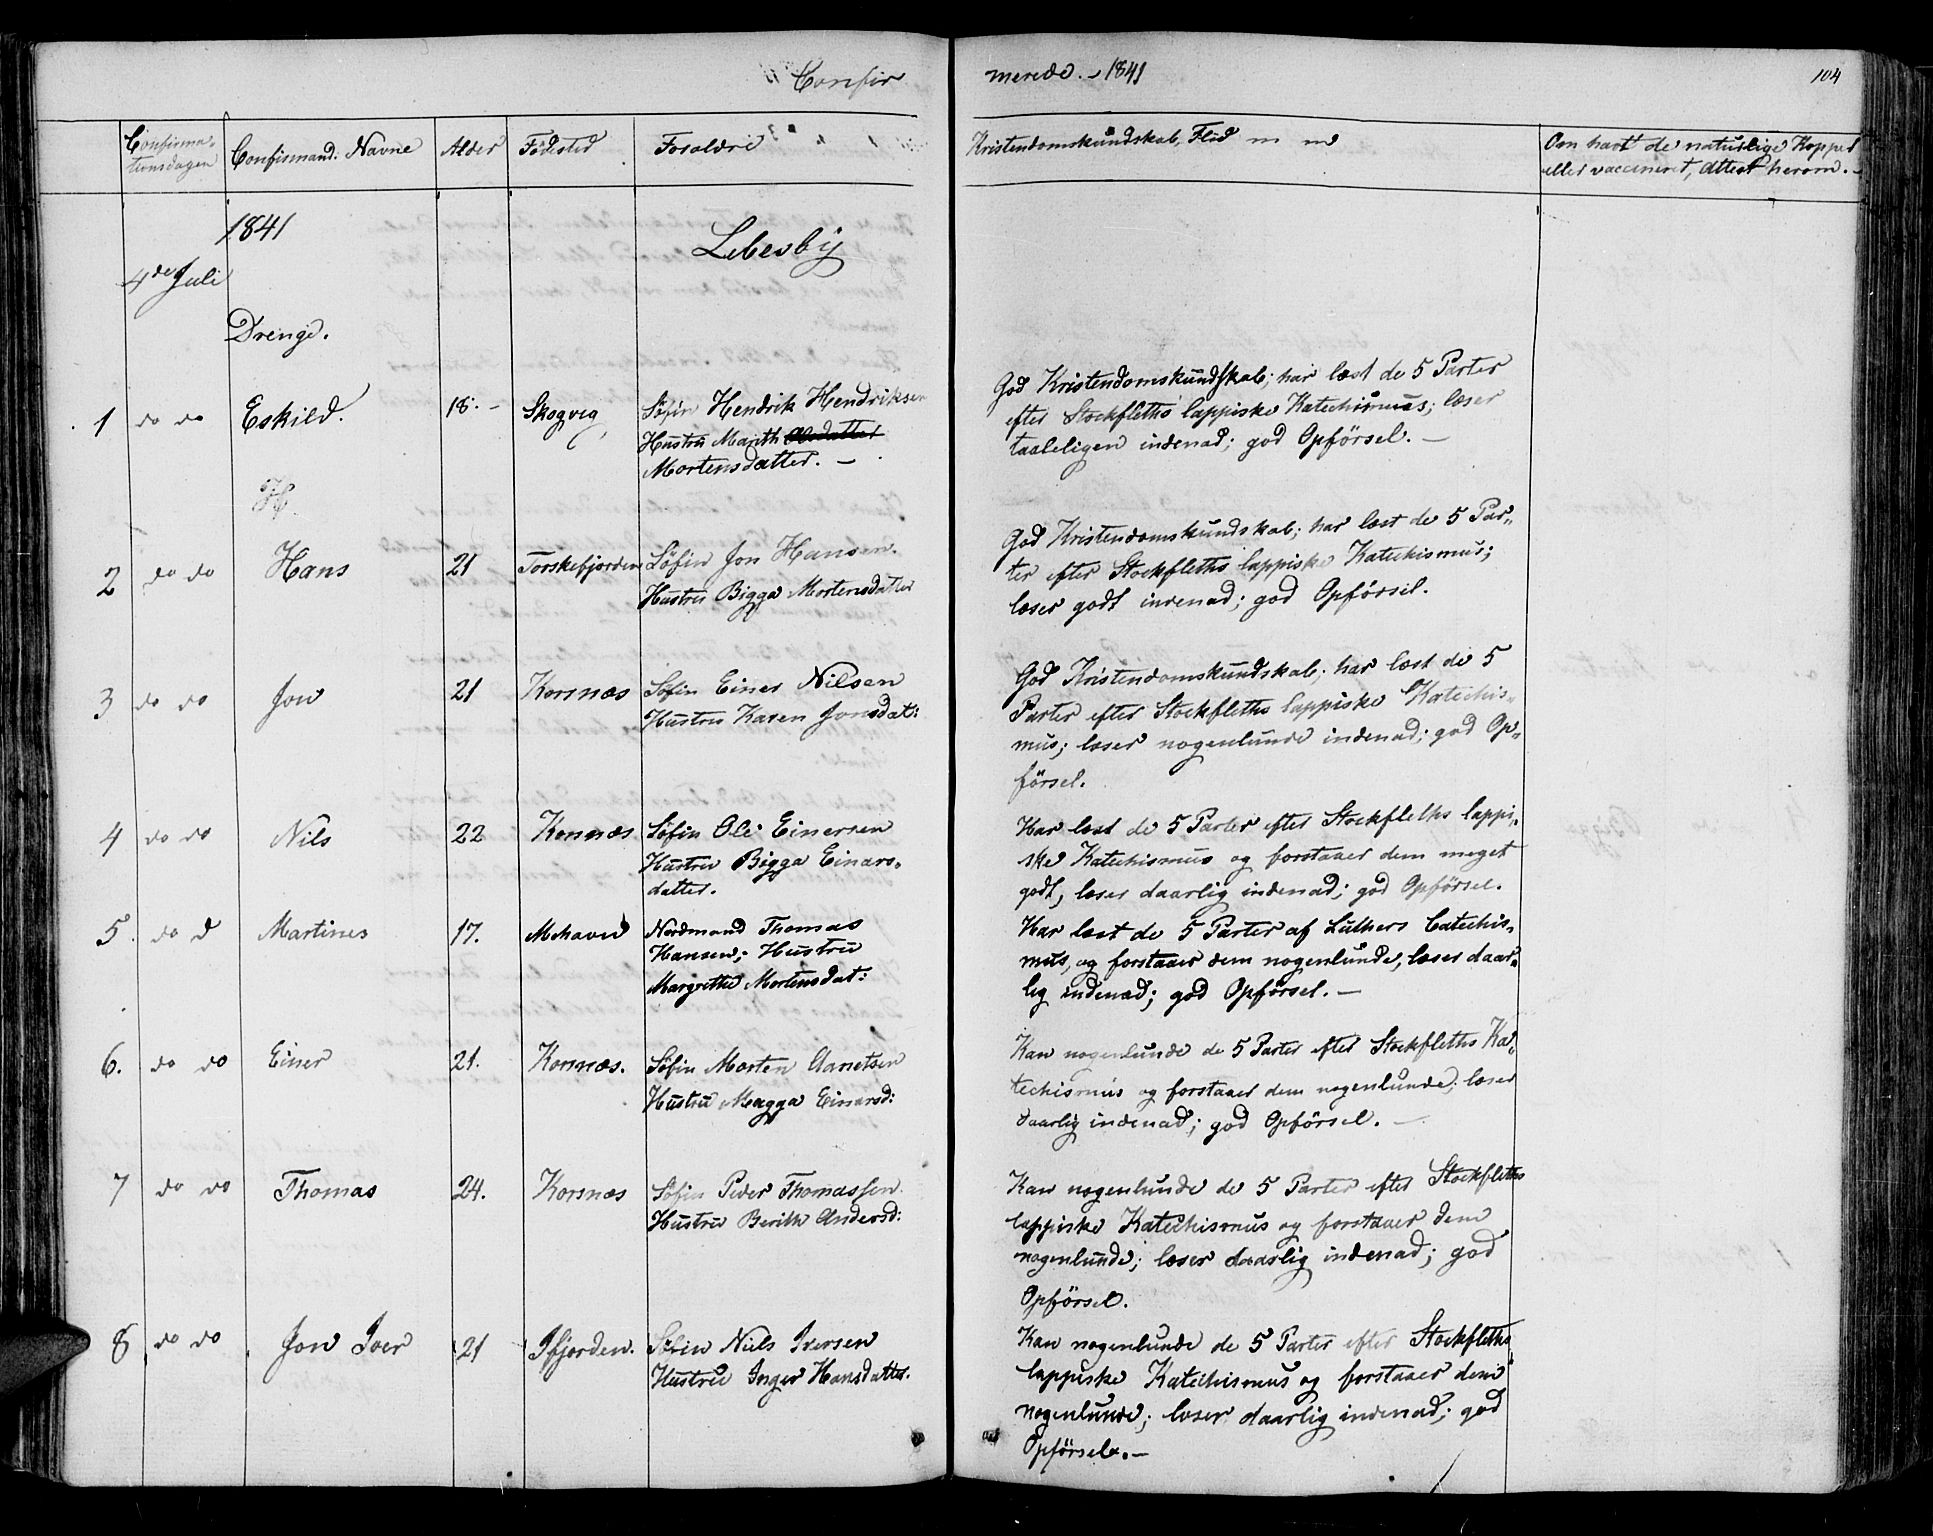 Confir merede. - 1841
104
Confirma-
tionsdagen
Confirmand: Navne
Alder
Födested
Forældre
Kristendomskundskab, Flid m m
Om havt de naturlige Kopper
eller vaccineret, Attest herom. -
1841
Lebesby
4de Juli
Drenge.
1 do do Eskild. 18. - Skogvig Søfin Hendrik Hendriksen
Hustru Marith Olsdatter
Mortensdatter. -
God Kristendomskundskab; har læst de 5 Parter
efter Stockfleths lappiske Katechismus; læser
taaleligen indenad; god Opförsel. -
H
2 do do Hans 21 Torskefjorden Søfin Jon Hansen.
Hustru Bigga Mortensdatter
God Kristendomskundskab; har læst de 5 Par-
ter efter Stockfleths lappiske Katechismus;
læser godt indenad; god Opförsel.
3 do do Jon 21 Korsnæs Søfin Einer Nilsen
Hustru Karen Jonsdat:
God Kristendomskundskab; har læst de 5
Parter efter Stockfleths lappiske Katechis-
mus; læser nogenlunde indenad; god Op-
försel.
4 do do Nils 22 Korsnæs Søfin Ole Einersen
Hustru Bigga Einars-
datter.
Har læst de 5 Parter efter Stockfleths lappi-
ske Katechismus og forstaaer dem meget
godt, læser daarlig indenad; god Opförsel.
5. do d Martines 17. Mehavn Nordmand Thomas
Hansen; Hustru
Margrethe Mortensdat:
Har læst de 5 Parter af Luthers Catechis-
mus, og forstaaer dem nogenlunde, læser daar-
lig indenad; god Opförsel. -
6. do do Einer 21. Korsnæs. Søfin Morten Aanetsen
Hustru Magga Einarsd:
Kan nogenlunde de 5 Parter efter Stockfleths Ka-
techismus og forstaaer dem nogenlunde; læser
daarlig indenad; god Opförsel. -
7 do do Thomas 24. Korsnæs Søfin Peder Thomassen.
Hustru Berith Andersd:
Kan nogenlunde de 5 Parter efter Stockfleths
lappiske Katechismus og forstaaer dem
nogenlunde; læser daarlig indenad; god
Opförsel.
8 do do Jon Iver 21 Ifjorden. Søfin Niels Iversen
Hustru Inger Hansdatter.
Kan nogenlunde de 5 Parter efter Stockfleths
lappiske Katechismus og forstaaer dem
nogenlunde; læser daarlig indenad; god
Opförsel. -